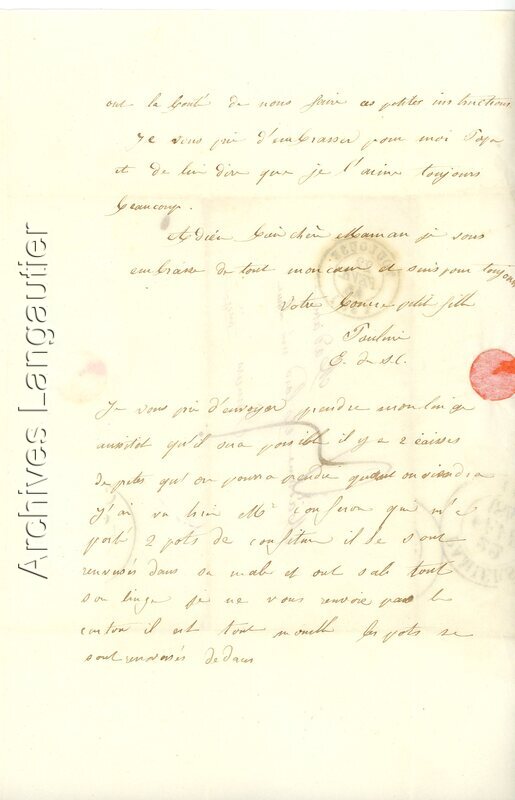 ont la bonté de nous faire ces petites instructions
Je vous prie d'embrasser pour moi Papa
et de lui dire que je l'aime toujours
beaucoup.
Adieu bien chère Maman je vous
embrasse de tout mon cœur et suis pour toujours
votre bonne petit fille
Pauline
E. de St C.
Je vous prie d'envoyer prendre mon linge
aussitot qu'il sera possible il y a 2 caisses
de prêtes qu'on pourra prendre quand on viendra
J'ai vu hier Mr que m'a
porté 2 pots de confiture il se sont
renversés dans sa male et ont sali tout
son linge je ne vous renvoie pas le
carton il est tout mouillé les pots se
sont renversés dedans
Archives Langautier